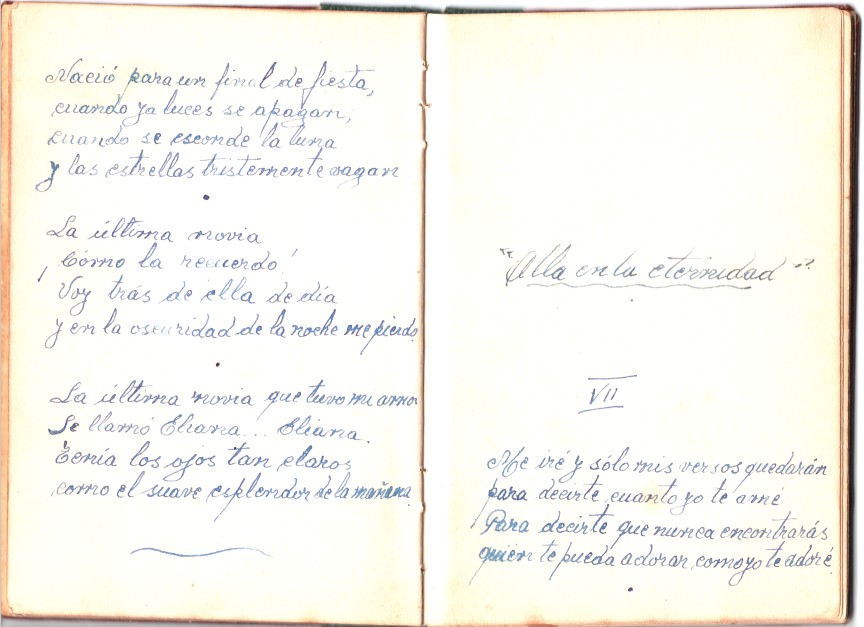 Nació para un final de fiesta,
cuando ya luces se apagan;
cuando se esconde la luna
y las estrellas tristemente vagan
La última novia
¡Cómo la recuerdo!
Voy trás de ella de día
y en la oscuridad de la noche me pierdo
La última novia que tuvo mi amor
Se llamó Eliana... Eliana.
Tenía los ojos tan claros
como el suave esplendor de la mañana
"Alla en la eternidad"
VII
Me iré y sólo mis versos quedarán
para decirte cuanto yo te amé
Para decirte que nunca encontrarás
quien te pueda adorar como yo te adoré.